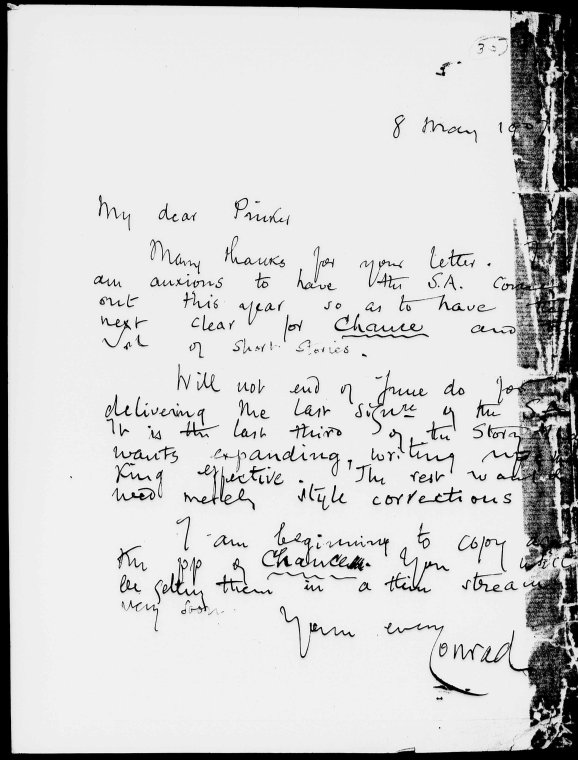 (35)
5
8 May 190
My dear Pinker
Many thanks for your letter. I
am anxious to have the S.A. come
out this year so as to have the
next clear for Chance and
Vol of short stories.
Will not end of June do for
delivering the last signre of the S.A.
It is the last third of the Story
wants expanding, writing
King effective. The rest
need merely style corrections
I am beginning to copy
the pp of Chance. You will
be getting them in a thin stream
very soon.
Yours ever
Conrad